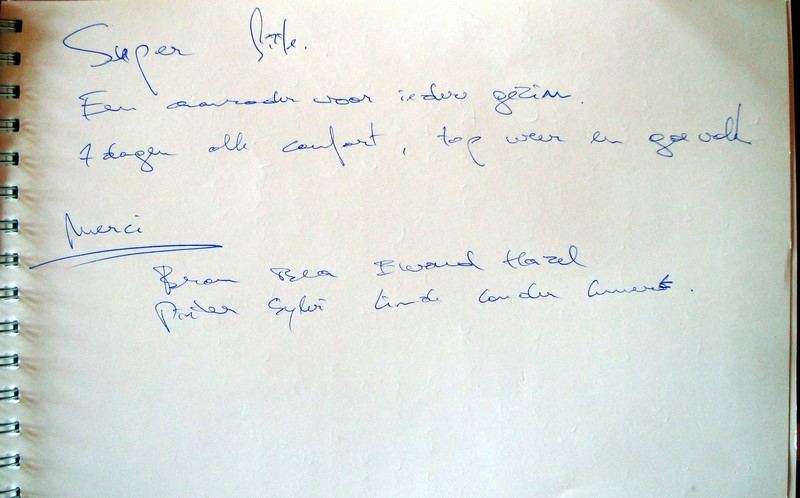 Super
Een aanrader voor ieder gezin.
7 dagen alle comfort, top weer en goe volk
Merci
Bram Bea Eward Hazel
Pieter Sylvi Linde Lander